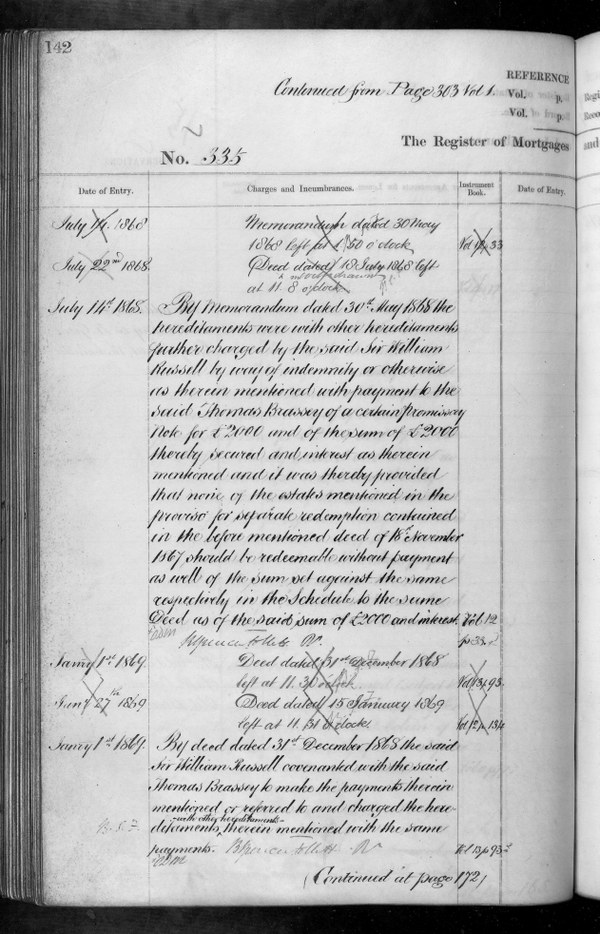 142
Continued from Page 303 Vol 1.
REFERENCE
Vol. p.
Vol. p.
The Register of Mortgages
No. 335
Date of Entry.
Charges and Incumbrances.
Instrument Book.
Date of Entry.
July 14. 1868
Memorandum dated 30 May
1868 left at 1.50 o'clock
Vol 12 p 33
July 22nd 1868.
Deed dated 18 July 1868 left
withdrawn
at 11.8 o'clock
July 14th 1868.
By Memorandum dated 30th May 1868 the
hereditaments were with other hereditaments
further charged by the said Sir William
Russell by way of indemnity or otherwise
as therein mentioned with payment to the
said Thomas Brassey of a certain Promissory
Note for £2000 and of the sum of £2000
thereby secured and interest as therein
mentioned and it was thereby provided
that none of the estates mentioned in the
proviso for separate redemption contained
in the before mentioned deed of 18th November
1867 should be redeemable without payment
as well of the sum set against the same
respectively in the Schedule to the same
Deed as of the said sum of £2000 and interest.
Vol 12
p 33.
Jany 1st 1869.
Deed dated 31st December 1868
left at 11.30 o'clock
Vol 13 p 93.
Jany 27th 1869
Deed dated 15 January 1869
left at 11.31 o'clock
Vol 12 p 134
Jany 1st 1869.
By deed dated 31st December 1868 the said
Sir William Russell covenanted with the said
Thomas Brassey to make the payments therein
mentioned or referred to and charged the here-
with other hereditaments
ditaments therein mentioned with the same
payments.
Vol 13 p 93
(Continued at page 172)